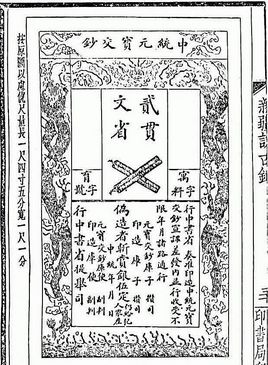 新疆訪古錄
印書局
中統元寶交鈔
貳貫
文省
字料
字號
行中書省 奏准印造中統元寶
交鈔宣課差發內並行收受不
限年月諸路通行
元寶交鈔庫子 攢司
印造庫子 攢司
偽造者斬賞銀伍定仍給犯人家產
中統 年 月 日
元寶交鈔庫使 副判
印造庫使 副判
行中書省提舉司
按原圖以慮俿尺量長一尺四寸五分寬一尺一分